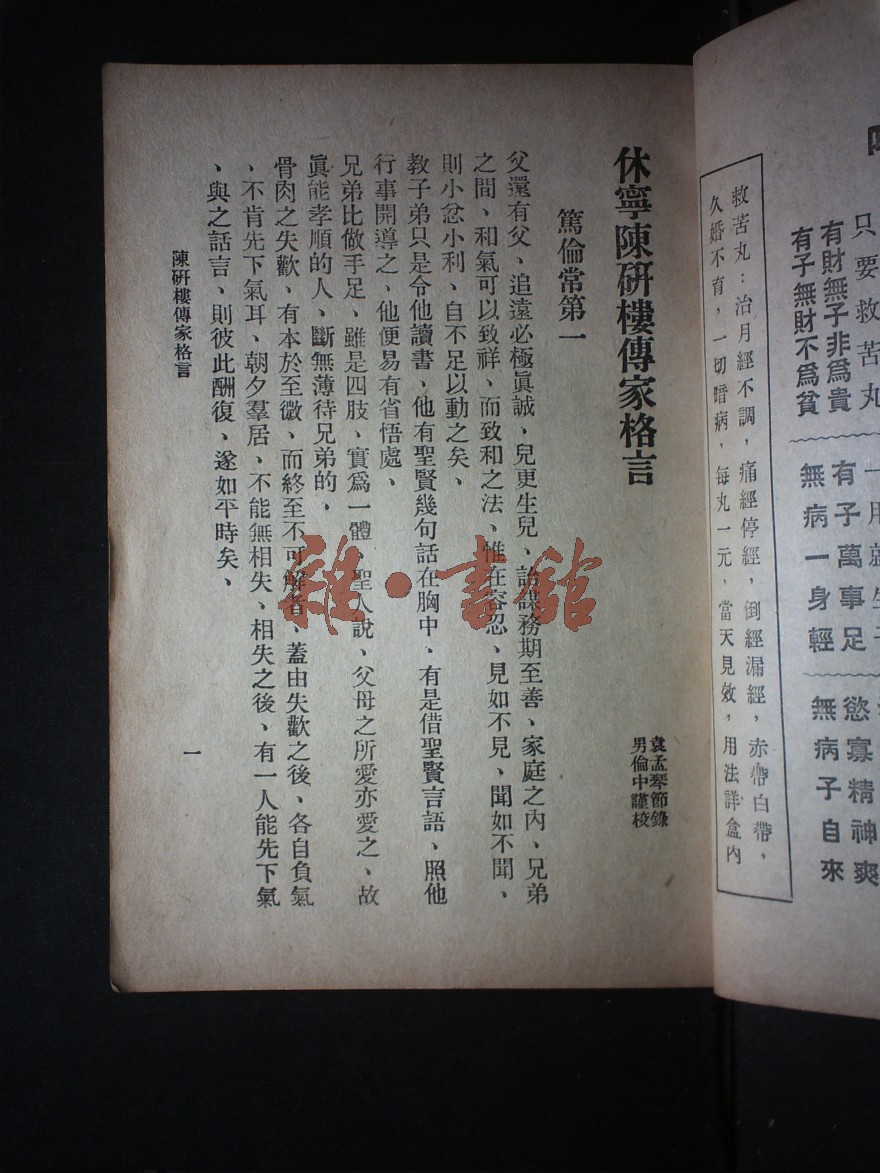 只要救苦丸
有財無子非為貴
有子無財不為貧
有子萬事足
無病一身輕
慾寡精神爽
無病子自來
救苦丸：治月經不調，痛經停經，倒經漏經，赤帶白帶，
久婚不育，一切暗病，每丸一元，當天見效，用法詳盒內
休寧陳研樓傳家格言
袁孟琴節錄
男倫中謹校
篤倫常第一
父還有父、追遠必極眞誠、兒更生兒、詒謀務期至善、家庭之內、兄弟
之間、和氣可以致祥、而致和之法、惟在容忍、見如不見、聞如不聞、
則小忿小利、自不足以動之矣、
教子弟只是令他讀書、他有聖賢幾句話在胸中、有是借聖賢言語、照他
行事開導之、他便易有省悟處、
兄弟比做手足、雖是四肢、實爲一體、聖人說、父母之所愛亦愛之、故
眞能孝順的人、斷無薄待兄弟的、
骨肉之失歡、有本於至微、而終至不可解者、蓋由失歡之後、各自負氣
、不肯先下氣耳、朝夕羣居、不能無相失、相失之後、有一人能先下氣
、與之話言、則彼此酬復、遂如平時矣、
陳研樓傳家格言
一
雜·書館